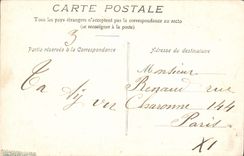 CARTE POSTALE
Tous les pays étrangers n'acceptent pas la correspondance au recto
(se renseigner à la poste)
Partie réservée à la Correspondance
Adresse du destinataire
3
Monsieur
Renaud rue
Charonne 144
Paris
XI